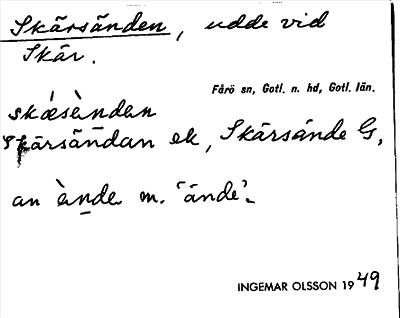 Skärsänden, udde vid
Skär.
Fårö sn, Gotl. n. hd, Gotl. län.
skǽsὰndan
Skärsändan ek, Skärsände G,
an ὰnde m. 'ände'.
INGEMAR OLSSON 1949